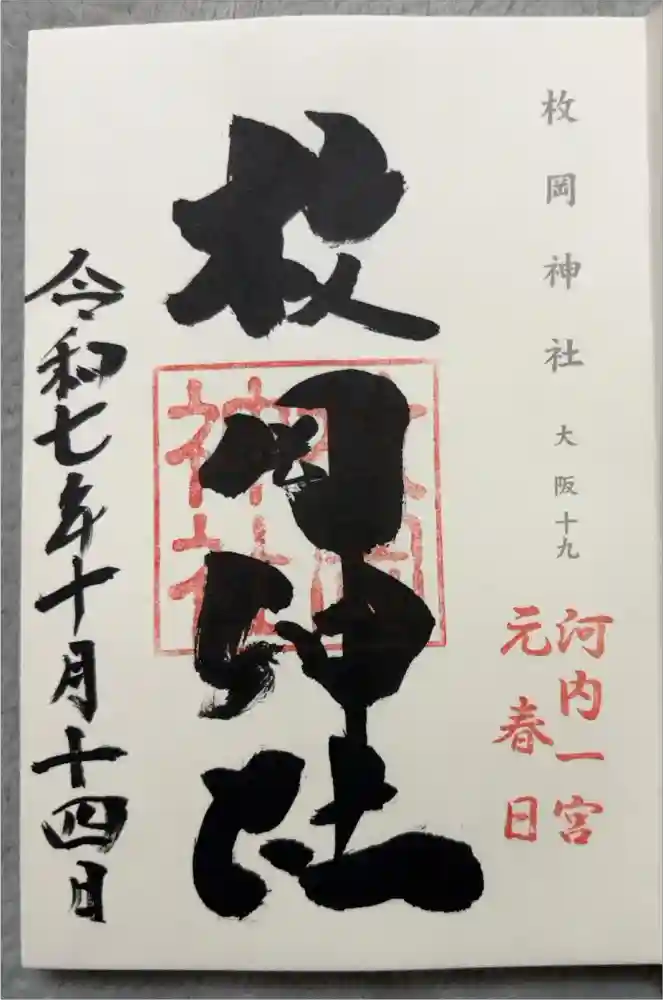 枚岡神社 大阪十九
河内一宮
元春日
枚岡神社
枚岡
神社
令和七年十月十四日